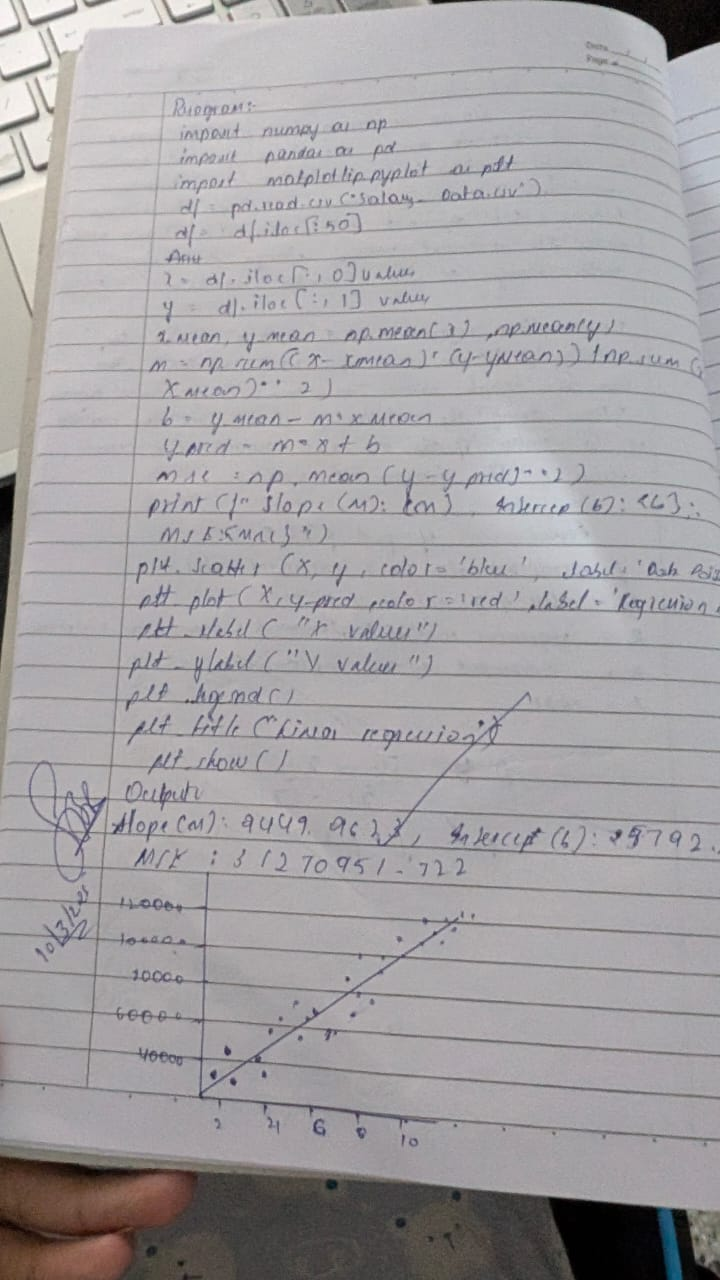 Date
Page
Program:-
import numpy as np
import pandas as pd
import matplotlip.pyplot as plt
df = pd.read.csv ("Salary_ Data.csv")
df = df.iloc[:50]
x = df. iloc [:, 0] values
y = df. iloc [:, 1] values
x mean, y mean = np.mean(x), np.mean(y)
m = np sum((x- xmean)* (y-ymean)) / np.sum (
x mean)** 2)
b = y mean - m* x mean
y pred = m* x + b
mse = np. mean (y-y pred)**2)
print (f" Slope (M): {m}, Intercep (b): {b},
MSE:{mse}")
plt. scatter (x, y, color= 'blue', label = 'Data Poi
plt plot (x, y-pred, color= 'red', label = 'Regression
plt xlabel ( "x values")
plt ylabel ("Y values")
plt .legend()
plt title ("Linear regression")
plt show ()
Output:
Slope (m): 9449. 962, Intercept (b): 25792.
MSE : 31270951.722
10/3/
120000
100000
10000
60000
40000
2 4 6 8 10